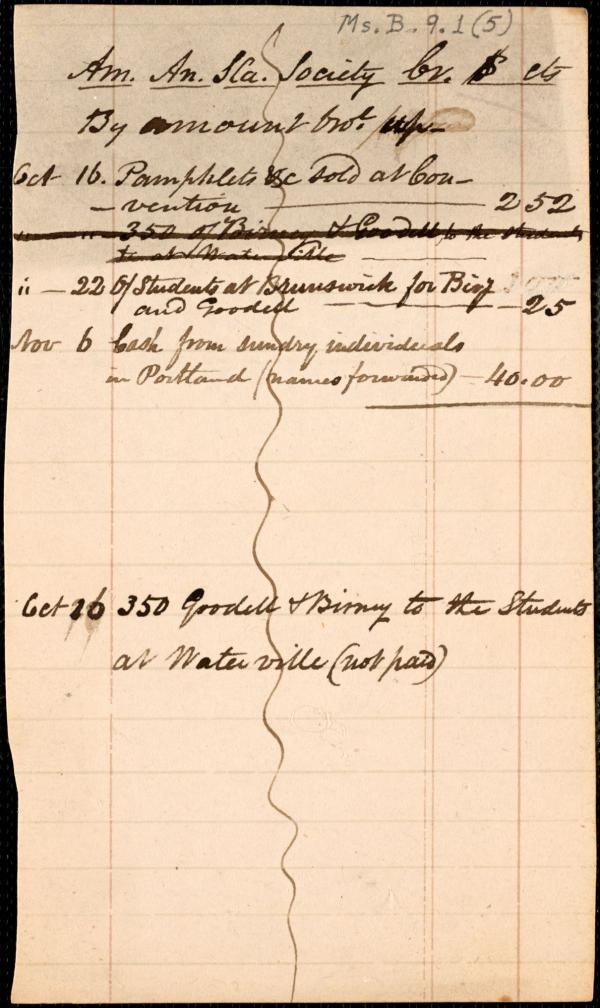 Ms. B. 9. 1 (5)
Am. An. Sla. Society Cr. $ cts
By amount brot. up—
Oct 16. Pamphlets &c sold at Con-
—vention — 2 52
" " 350 of Birney & Goodell to the students
at Waterville —
" — 22 Of Students at Brunswick for Birn
and Goodell — 25
Nov 6 Cash from sundry individuals
in Portland (names forwarded) — 40.00
Oct 16 350 Goodell & Birney to the Students
at Waterville (not paid)